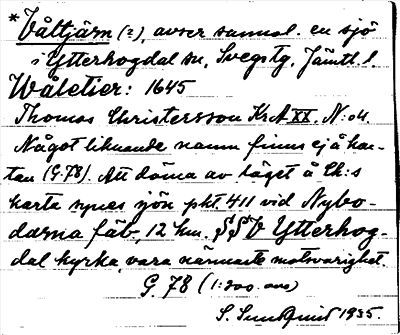 *Våltjärn (?), avser sannol. en sjö
i Ytterhogdal sn, Svegs tg, Jämtl. l.
Wåletier: 1645
Thomas Christersson KrA XX. N:o 4.
Något liknande namn finns ej å kar-
tan (G. 78). Att döma av läget å Ch:s
karta synes sjön pkt. 411 vid Nybo-
darna fäb, 12 km. SSV Ytterhog-
dal kyrka, vara närmaste motsvarighet.
G. 78 (1:200.000)
S. Sundquist 1935.